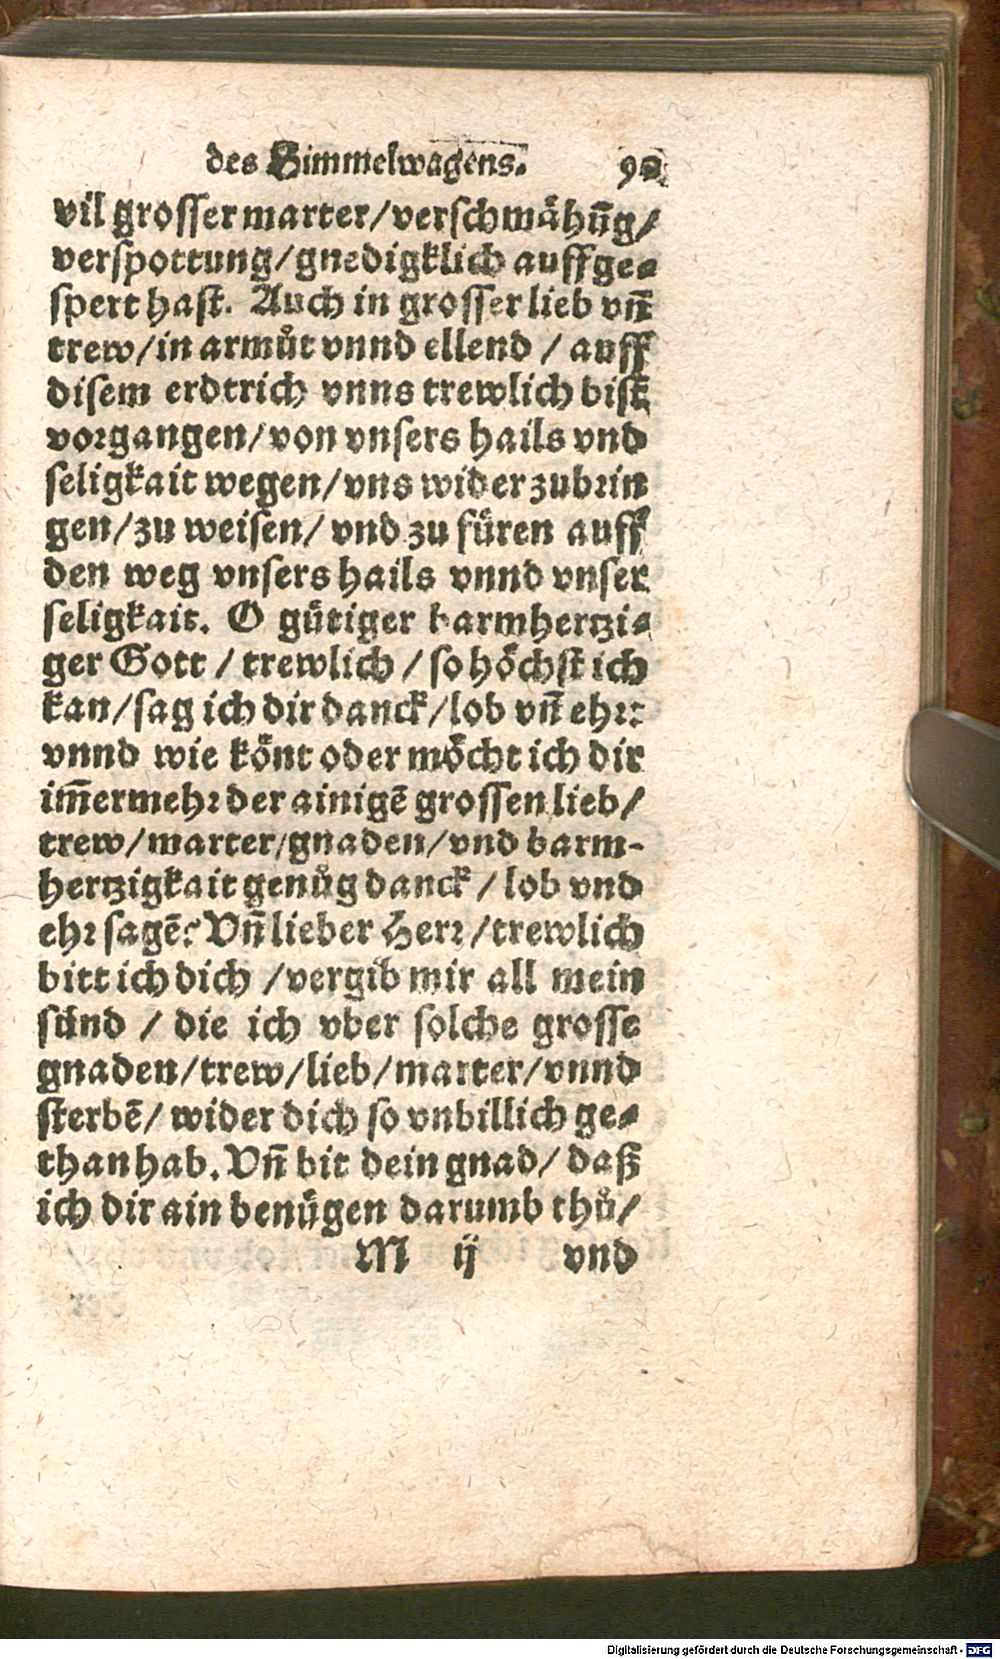 des Himmelwagens.
vil grosser marter/verschmähūg/
verspottung/gnedigklich auffge-
spert hast. Auch in grosser lieb vn̄
trew/in armůt vnnd ellend / auff
disem erdtrich vnns trewlich bist
vorgangen/von vnsers hails vnd
seligkait wegen/vns wider zubrin
gen/zu weisen/ vnd zu füren auff
den weg vnsers hails vnnd vnser
seligkait. O gütiger barmhertzi-
ger Gott / trewlich / so höchst ich
kan/sag ich dir danck/lob vn̄ ehr:
vnnd wie könt oder möcht ich dir
im̄ermehr der ainigē grossen lieb/
trew/marter/gnaden/vnd barm-
hertzigkait genůg danck / lob vnd
ehr sagē? Vn̄ lieber Herr /trewlich
bitt ich dich /vergib mir all mein
sünd / die ich vber solche grosse
gnaden/trew/lieb/marter/vnnd
sterbē/ wider dich so vnbillich ge-
than hab. Vn̄ bit dein gnad/ daß
ich dir ain benügen darumb thů/
M ij vnd
Digitalisierung gefördert durch die Deutsche Forschungsgemeinschaft - DFG